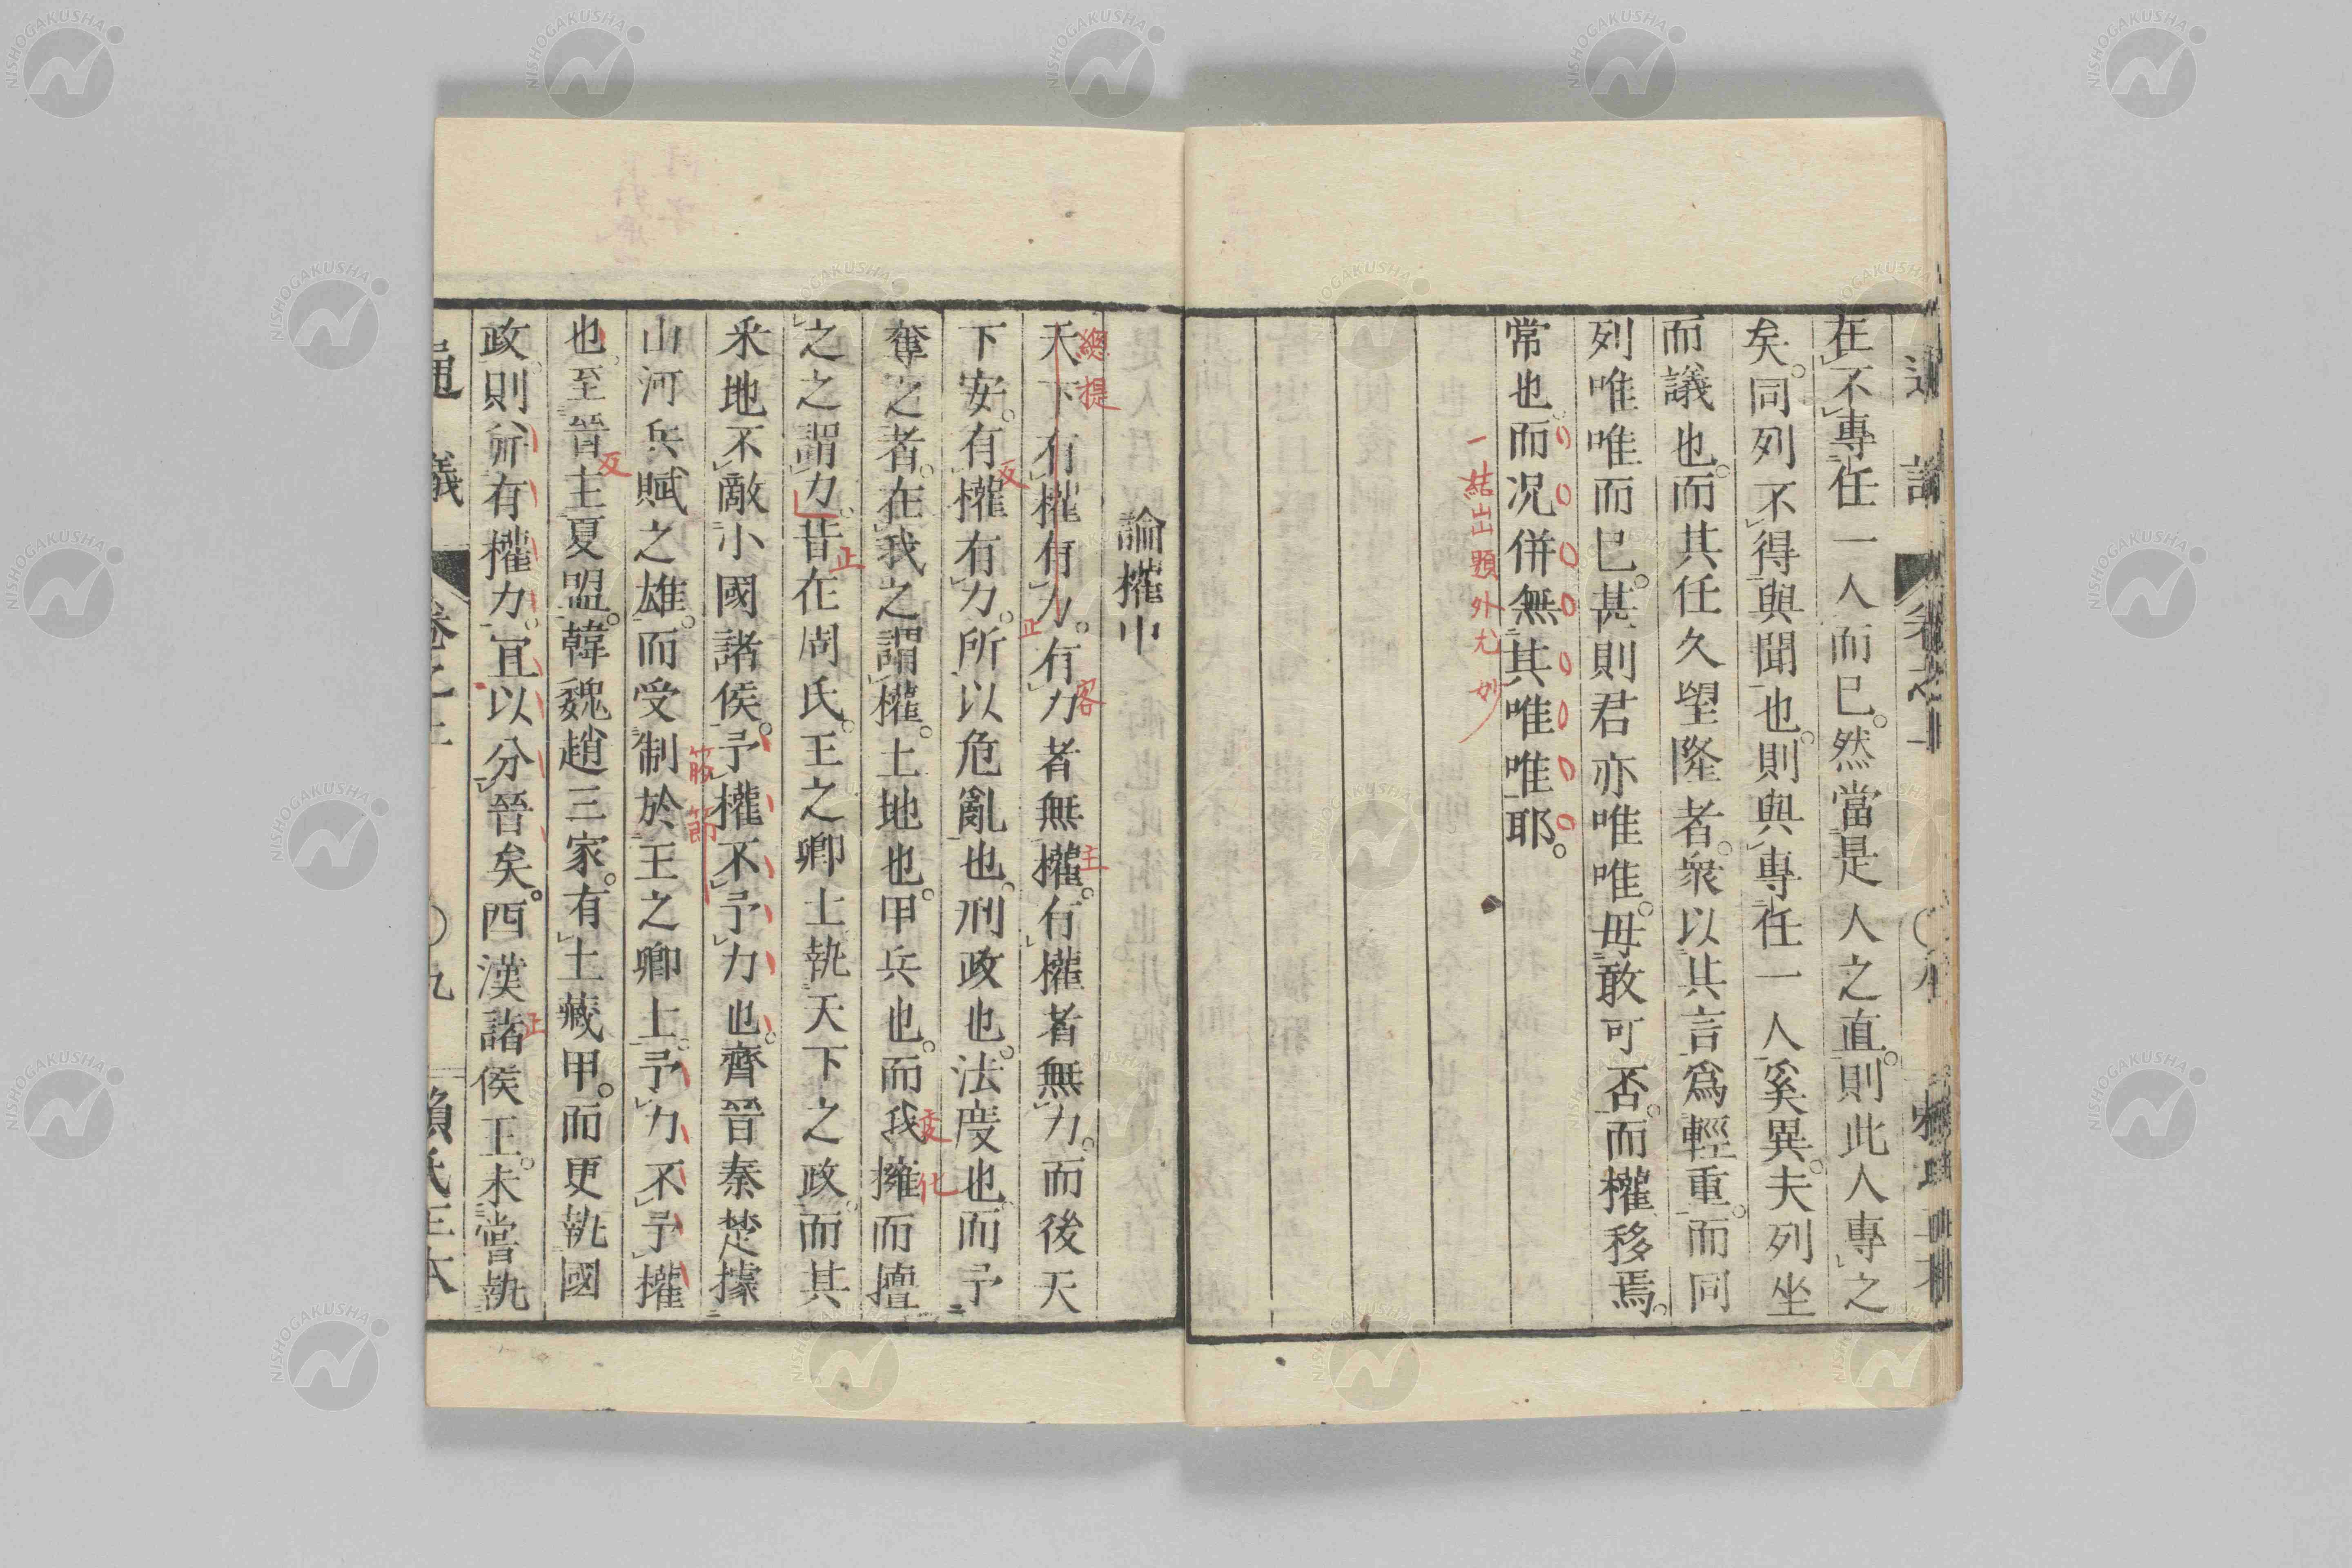 在不專任一人而已。然當是人之直。則此人專之
矣。同列不得與聞也。則與專任一人奚異。夫列坐
而議也。而其任久望隆者。衆以其言爲輕重。而同
列唯唯而已。甚則君亦唯唯。毋敢可否。而權移焉。
常也。而况併無其唯唯耶。
一結出題外尤妙
論權中
天下有權有力。有力者無權。有權者無力。而後天
總提
正
客
主
下安。有權有力。所以危亂也。刑政也。法度也。而予
反
奪之者。在我之謂權。土地也。甲兵也。而我擁而擅
变化
之之謂力。昔在周氏。王之卿士執天下之政。而其
正
釆地不敵小國諸侯。予權不予力也。齊晉秦楚據
山河兵賦之雄。而受制於王之卿士。予力不予權
筋節
也。至晉主夏盟。韓魏趙三家。有土藏甲。而更執國
反
政。則所有權力。宜以分晉矣。西漢諸侯王。未嘗執
正
通議
卷之二
〇九
賴氏正本
NISHOGAKUSHA